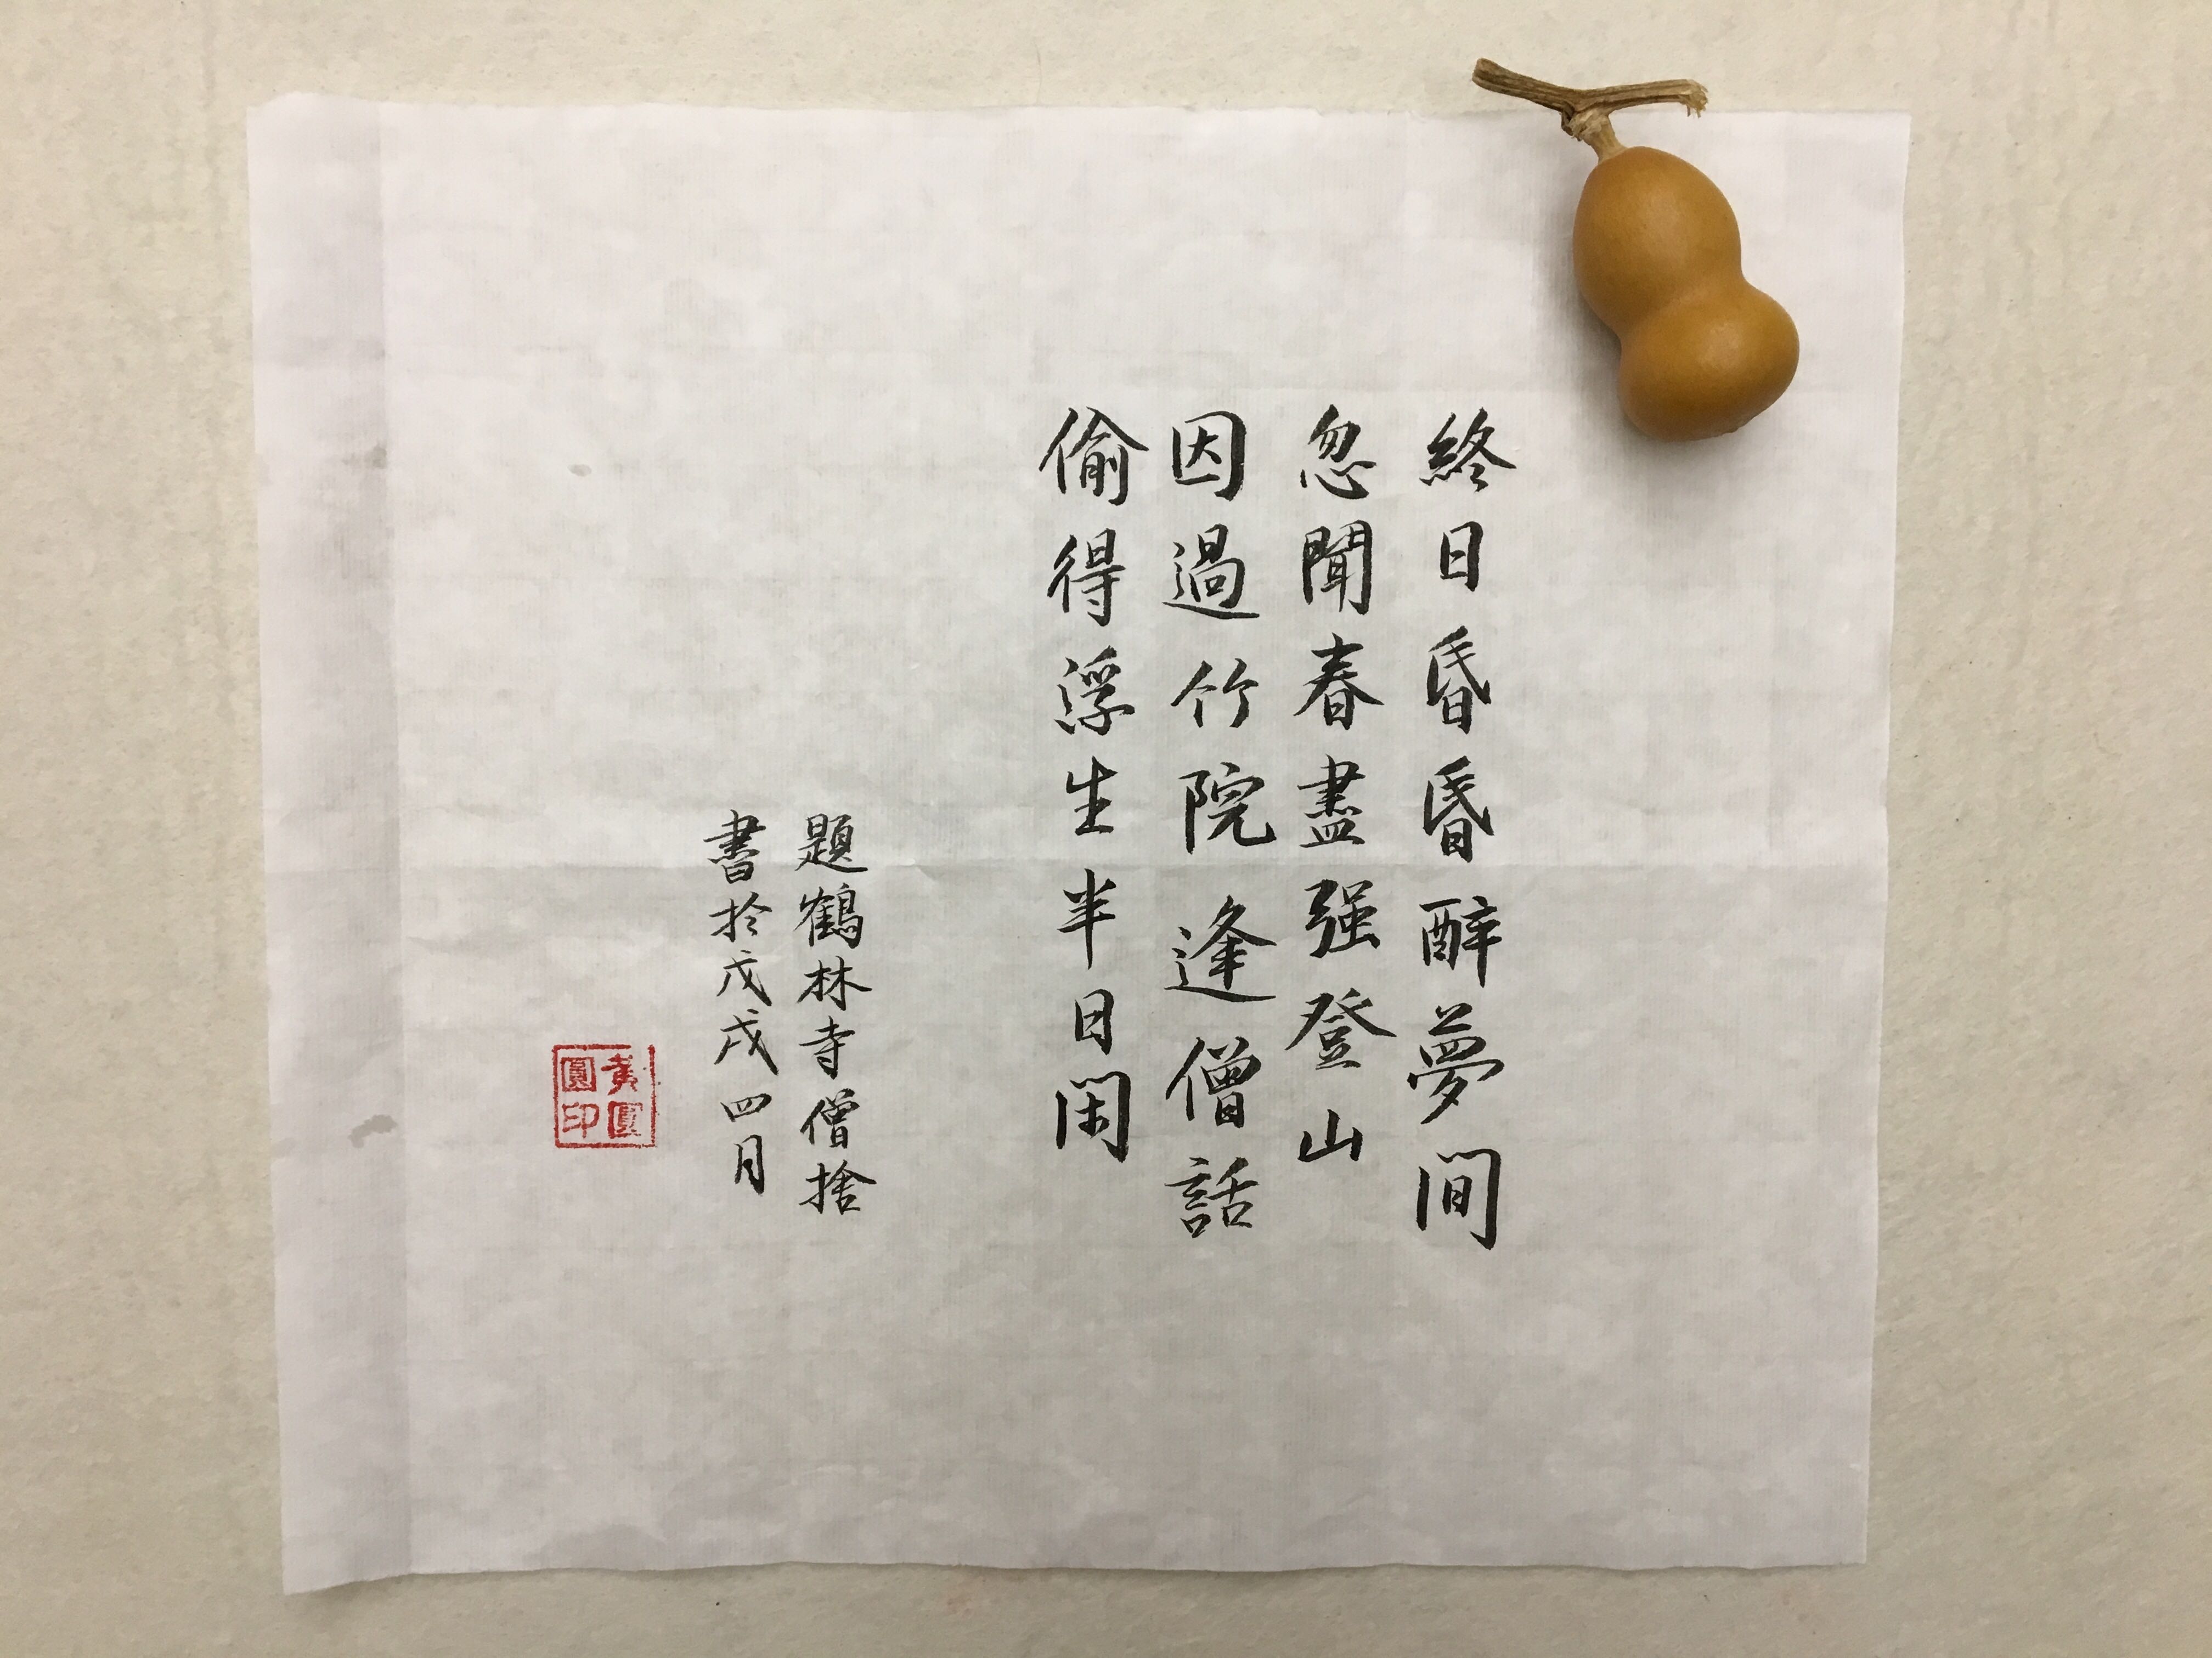 終日昏昏醉夢間
忽聞春盡强登山
因過竹院逢僧話
偷得浮生半日閑
題鶴林寺僧捨
書於戊戌四月
黃圓圓印